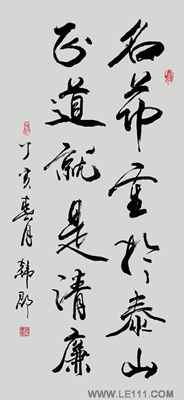 名节重于泰山
正道就是清廉
丁亥春月 韩郡
www.LE111.com